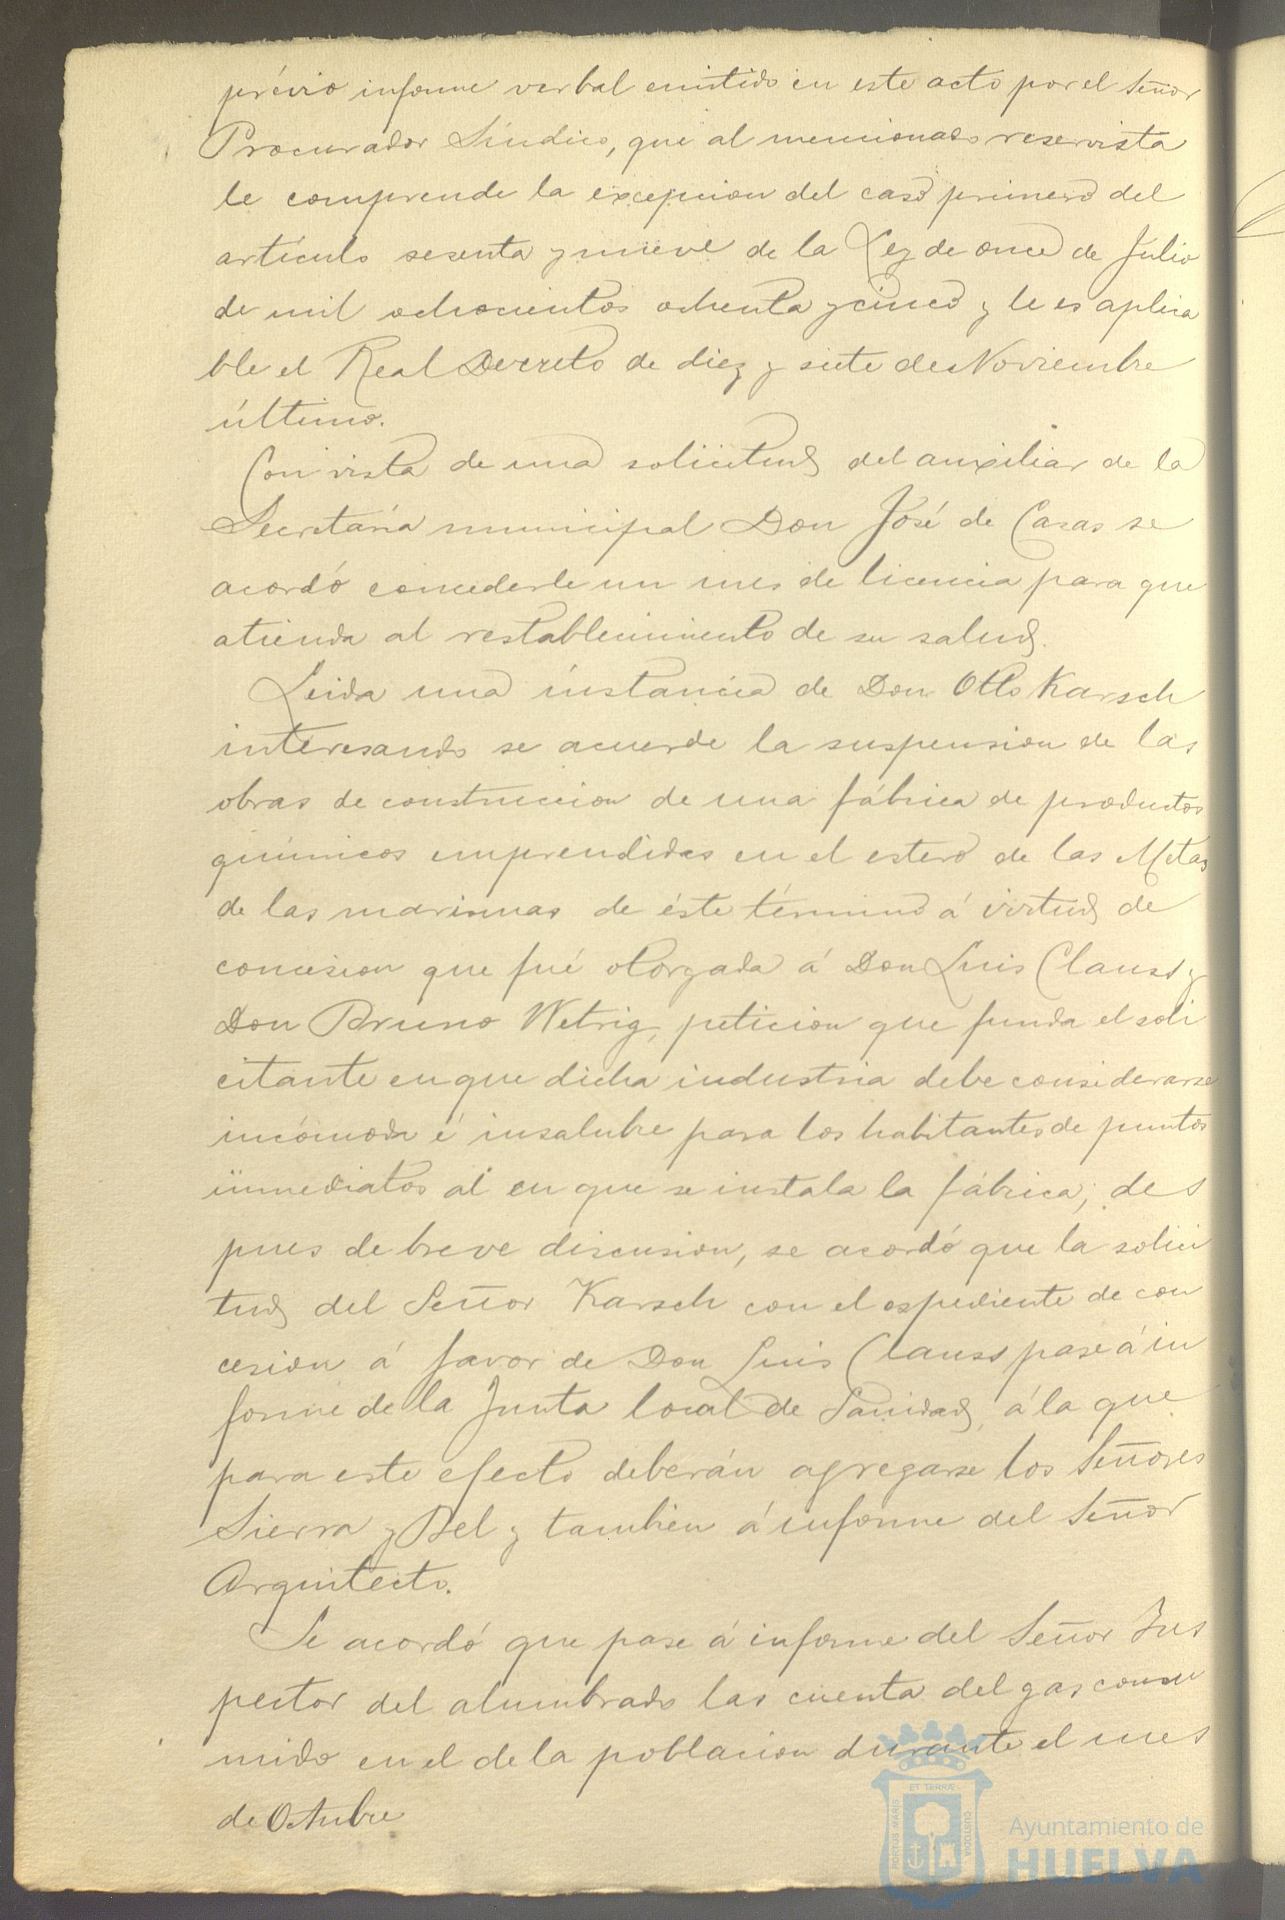 prévio informe verbal emitido en este acto por el Señor
Procurador Síndico, que al mencionado reservista
le comprende la excepcion del caso primero del
artículo sesenta y nueve de la Ley de once de Julio
de mil ochocientos ochenta y cinco y le es aplica
ble el Real Decreto de diez y siete de Noviembre
último.
Con vista de una solicitud del auxiliar de la
Secretaría municipal Don José de Casas se
acordó concederle un mes de licencia para que
atienda al restablecimiento de su salud.
Leida una instancia de Don Otto Karsch
interesando se acuerde la suspension de las
obras de construccion de una fábrica de productos
químicos emprendidas en el estero de las Metas
de las marismas de éste término á virtud de
concesion que fué otorgada á Don Luis Clauss y
Don Bruno Wetrig, peticion que funda el soli
citante en que dicha industria debe considerarse
incómoda é insalubre para los habitantes de puntos
inmediatos al en que se instala la fábrica; des
pues de breve discusion, se acordó que la solici
tud del Señor Karsch con el espediente de con
cesion á favor de Don Luis Clauss pase á in
forme de la Junta local de Sanidad, á la que
para este efecto deberán agregarse los Señores
Sierra y Bel y tambien á informe del Señor
Arquitecto.
Se acordó que pase á informe del Señor Ins
pector del alumbrado las cuenta del gas consu
mido en el de la poblacion durante el mes
de Octubre
PORTUS MARIS ET TERRAE CUSTODIA
Ayuntamiento de
HUELVA